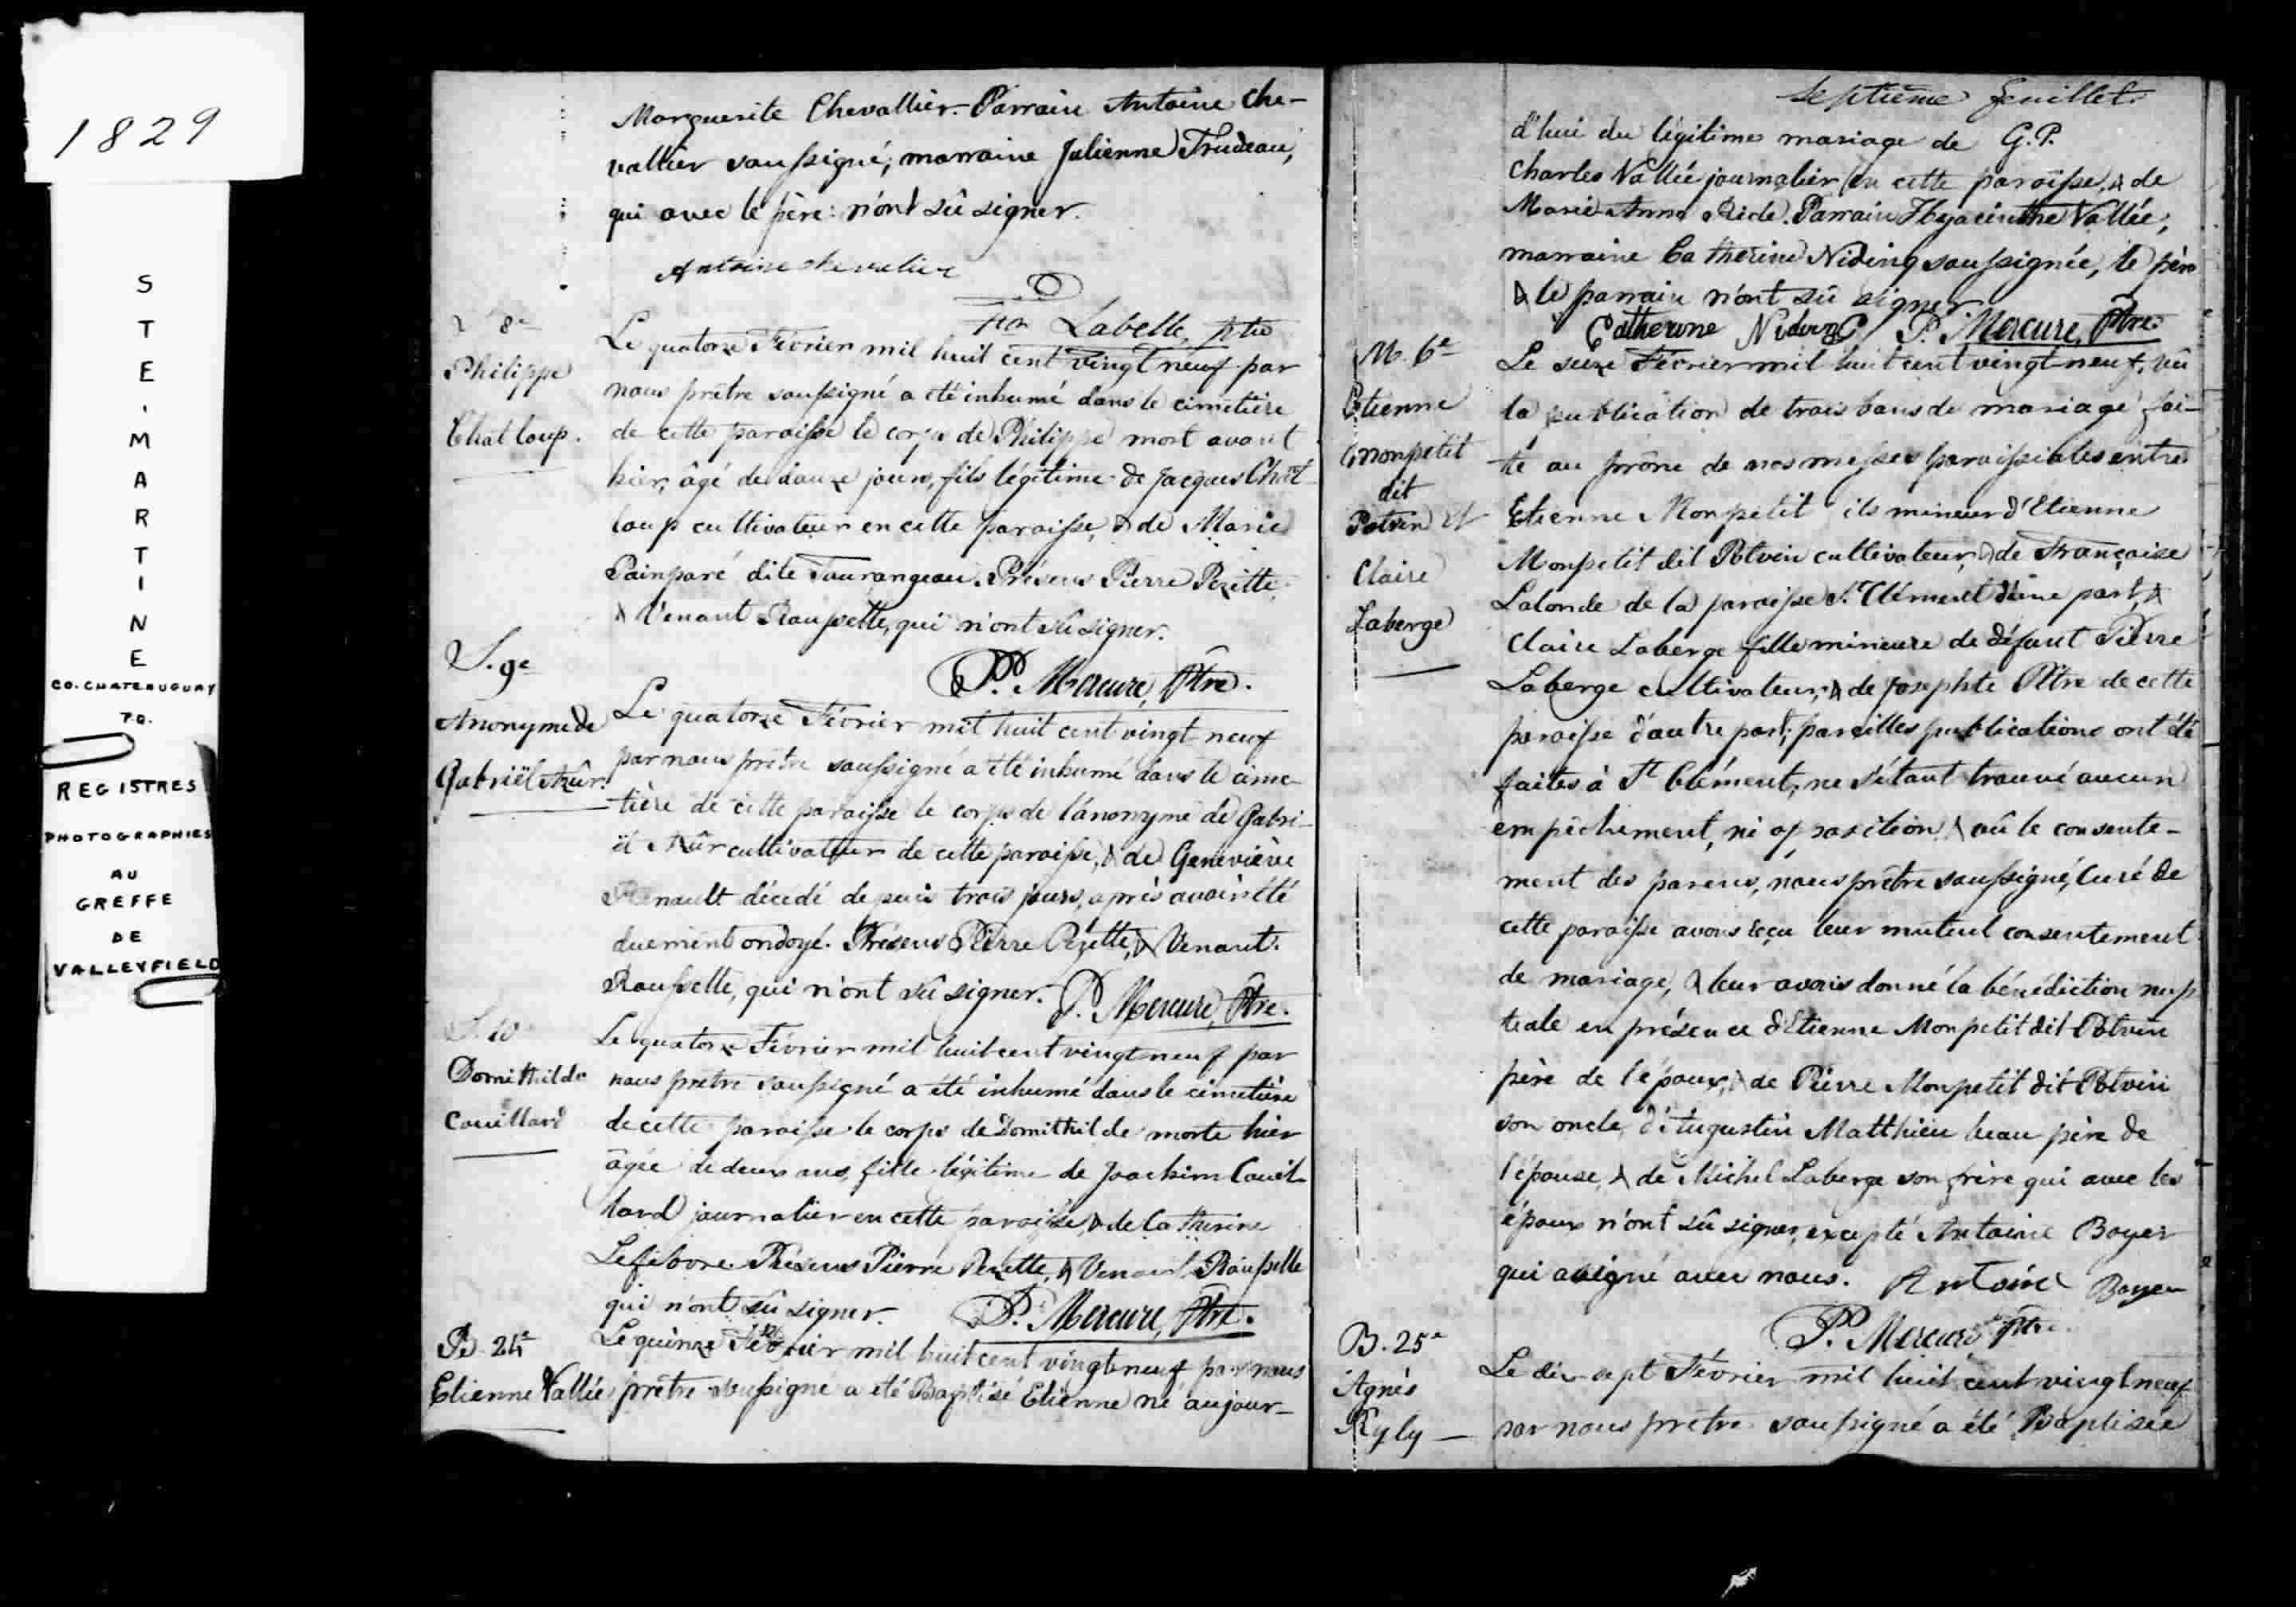 1829
STE. MARTINE
CO. CHATEAUGUAY
P.Q.
REGISTRES
PHOTOGRAPHIES
AU
GREFFE
DE
VALLEYFIELD
Marguerite Chevallier. Parrain Antoine Che-
vallier soussigné; marraine Julienne Trudeau,
qui avec le père n'ont sû signer.
Antoine chevalier
Labelle, ptre
8e
Philippe
Chatloup.
Le quatorze Février mil huit cent vingt neuf par
nous prêtre soussigné a été inhumé dans le cimetière
de cette paroisse le corps de Philippe mort avant
hier, âgé de douze jours, fils légitime de Jacques Chat-
loup cultivateur en cette paroisse, & de Marie
Painparé dite Tourangeau. Présens Pierre Pezette
& Venant Rousselle, qui n'ont sû signer.
P. Mercure, Ptre.
S. 9e
Anonyme de
Gabriël
Le quatorze Février mil huit cent vingt neuf
par nous prêtre soussigné a été inhumé dans le cime-
tière de cette paroisse le corps de l'anonyme de Gabri-
ël cultivateur de cette paroisse, & de Geneviève
Renault décédé depuis trois jours, après avoir été
duement ondoyé. Présens Pierre Pezette, & Venant
Rousselle, qui n'ont sû signer. P. Mercure, Ptre.
S. 10
Domithilde
Couillard
Le quatorze Février mil huit cent vingt neuf par
nous prêtre soussigné a été inhumé dans le cimetière
de cette paroisse le corps de Domithilde morte hier
âgée de deux ans, fille légitime de Joachim Couil-
lard journalier en cette paroisse, & de Catherine
Lefebvre. Présens Pierre Pezette, & Venant Rousselle
qui n'ont sû signer. P. Mercure, Ptre.
B. 24e
Etienne Vallée
Le quinze Février mil huit cent vingt neuf par nous
prêtre soussigné a été Baptisé Etienne né aujour-
septième feuillet.
d'hui du légitime mariage de G.P.
Charles Vallée journalier en cette paroisse, & de
Marie Anne Parrain Hyacinthe Vallée;
marraine Catherine Niding soussignée, le père
& le parrain n'ont sû signer.
Catherine Niding P. Mercure, Ptre.
M. 6e
Etienne
Monpetit
dit
Potvin et
Claire
Laberge
Le seize Février mil huit cent vingt neuf, vû
la publication de trois bans de mariage fai-
te au prône de nos messes paroissiales entre
Etienne Monpetit fils mineur d'Etienne
Monpetit dit Potvin cultivateur, & de Françoise
Lalonde de la paroisse St. Clément d'une part, &
Claire Laberge fille mineure de défunt Pierre
Laberge cultivateur, & de Josephte de cette
paroisse d'autre part; pareilles publications ont été
faites à St Clément; ne s'étant trouvé aucun
empêchement, ni opposition, & vû le consente-
ment des parens, nous prêtre soussigné, Curé de
cette paroisse avons reçu leur mutuel consentement
de mariage, & leur avons donné la bénédiction nup
tiale en présence d'Etienne Monpetit dit Potvin
père de l'époux, & de Pierre Monpetit dit Potvin
son oncle, d'Augustin Matthieu beau père de
l'épouse, & de Michel Laberge son frère qui avec les
époux n'ont sû signer, excepté Antoine Boyer
qui a signé avec nous. Antoine Boyer
P. Mercure Ptre.
B. 25e
Agnès
Ryly
Le dix sept Février mil huit cent vingt neuf
par nous prêtre soussigné a été Baptisée